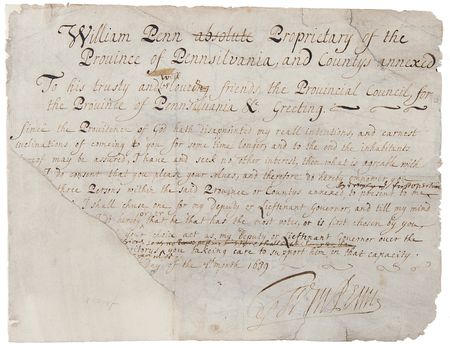 William Penn absolute Proprietary of the
Province of Pennsilvania, and Countys annexed
To his trusty and loveing friends, the Provincial Council, for
the Province of Pennsilvania & Greeting.
Since the Providence of God hath disapointed my reall intentions, and earnest
inclinations of comeing to you, for some time longer, and to the end the inhabitants
may be assured, I have and seek no other interest, then what is agreable with
I do consent that you please your selves, and therefore do hereby
three Persons within the said Province or Countys annexed to present to me
I shall chuse one, for my Deputy or Lieftenant Governor, and till my mind
do hereby that he that has the most votes, or is first chosen by you
act as my Deputy or Lieftenant Governor over the
you takeing care to support him, in that capacity.
of the month 1689
Wm Penn